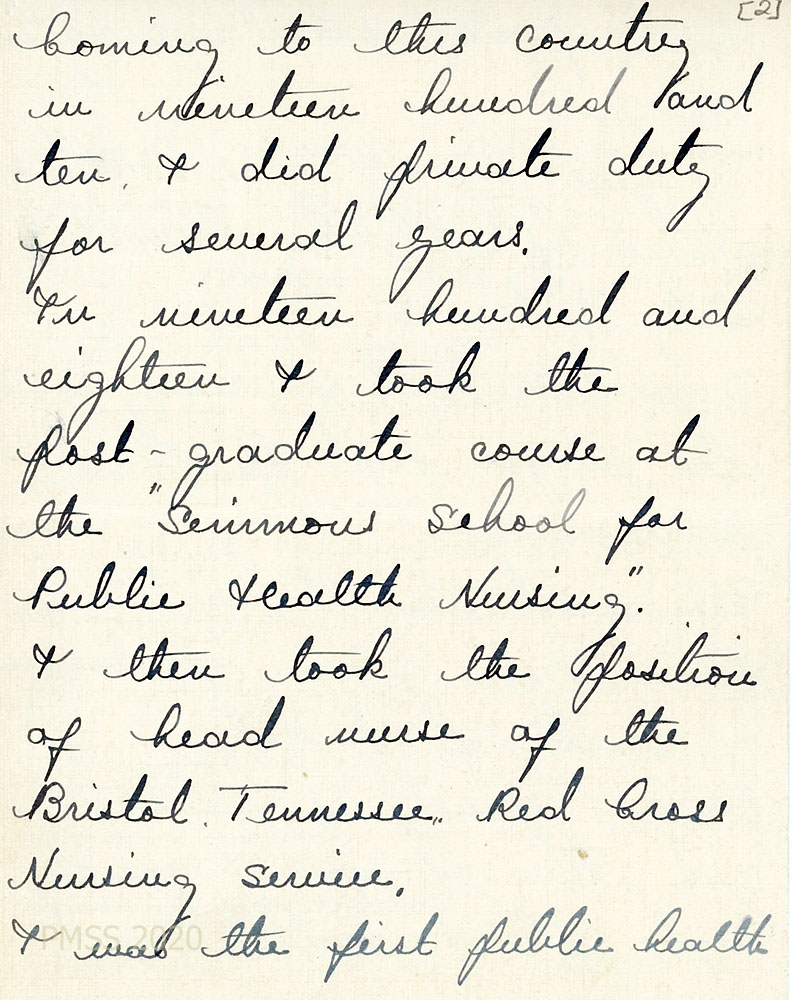 [2]
Coming to this country
in nineteen hundred and
ten, I did private duty
for several years.
In nineteen hundred and
eighteen I took the
post-graduate course at
the "Simmons School for
Public Health Nursing".
I then took the position
of head nurse of the
Bristol, Tennessee, Red Cross
Nursing Service.
I was the first public health
PMSS 2020